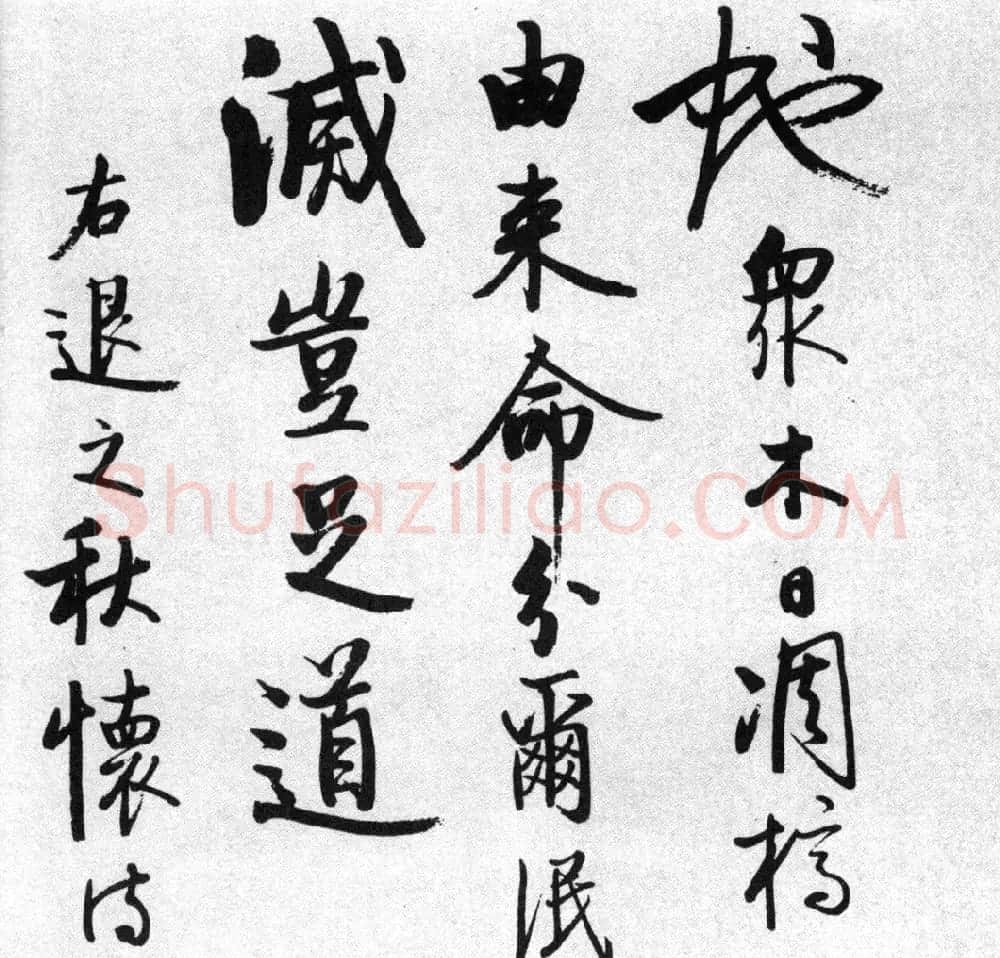 虵衆木日凋槁
由来命分爾泯
滅豈足道
右退之秋懷詩
Shufaziliao.COM